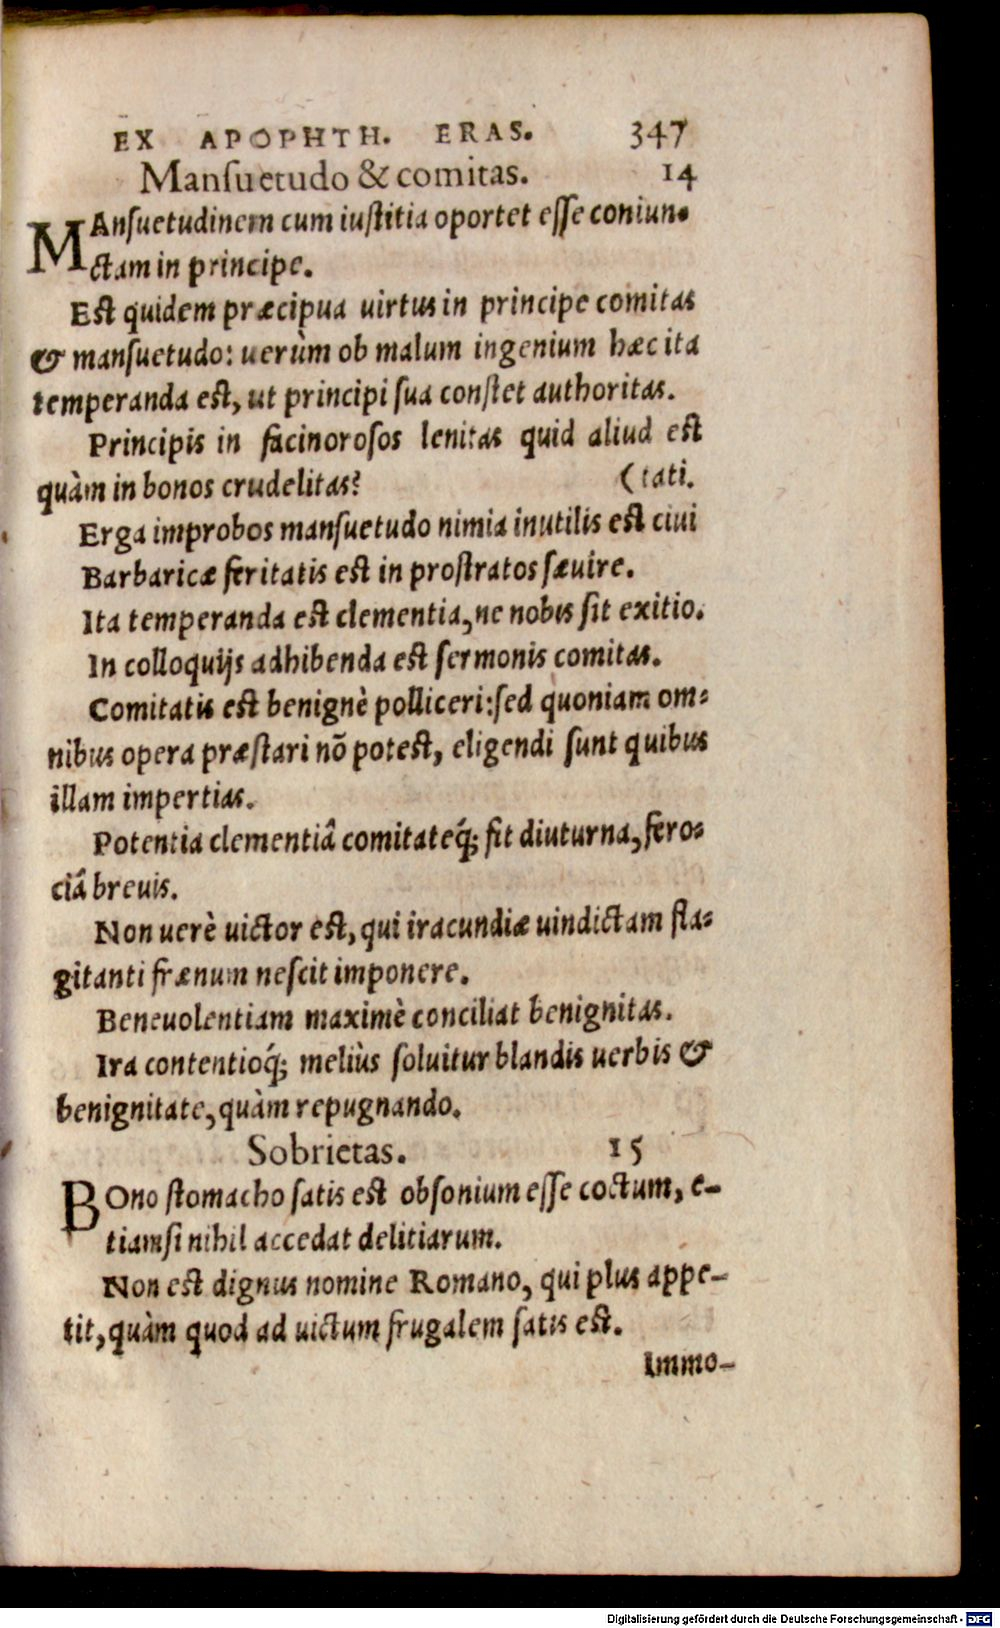 EX APOPHTH. ERAS. 347
Mansuetudo & comitas. 14
MAnsuetudinem cum iustitia oportet esse coniun-
ctam in principe.
Est quidem præcipua uirtus in principe comitas
& mansuetudo: uerùm ob malum ingenium hæc ita
temperanda est, ut principi sua constet authoritas.
Principis in facinorosos lenitas quid aliud est
quàm in bonos crudelitas? (tati.
Erga improbos mansuetudo nimia inutilis est ciui
Barbaricæ feritatis est in prostratos sæuire.
Ita temperanda est clementia, ne nobis sit exitio.
In colloquijs adhibenda est sermonis comitas.
Comitatis est benignè polliceri: sed quoniam om-
nibus opera præstari nõ potest, eligendi sunt quibus
illam impertias.
Potentia clementiâ comitateq́; fit diuturna, fero-
ciâ breuis.
Non uerè uictor est, qui iracundiæ uindictam fla-
gitanti frænum nescit imponere.
Beneuolentiam maximè conciliat benignitas.
Ira contentioq́; meliùs soluitur blandis uerbis &
benignitate, quàm repugnando.
Sobrietas. 15
BOno stomacho satis est obsonium esse coctum, e-
tiamsi nihil accedat delitiarum.
Non est dignus nomine Romano, qui plus appe-
tit, quàm quod ad uictum frugalem satis est.
Immo-
Digitalisierung gefördert durch die Deutsche Forschungsgemeinschaft - DFG